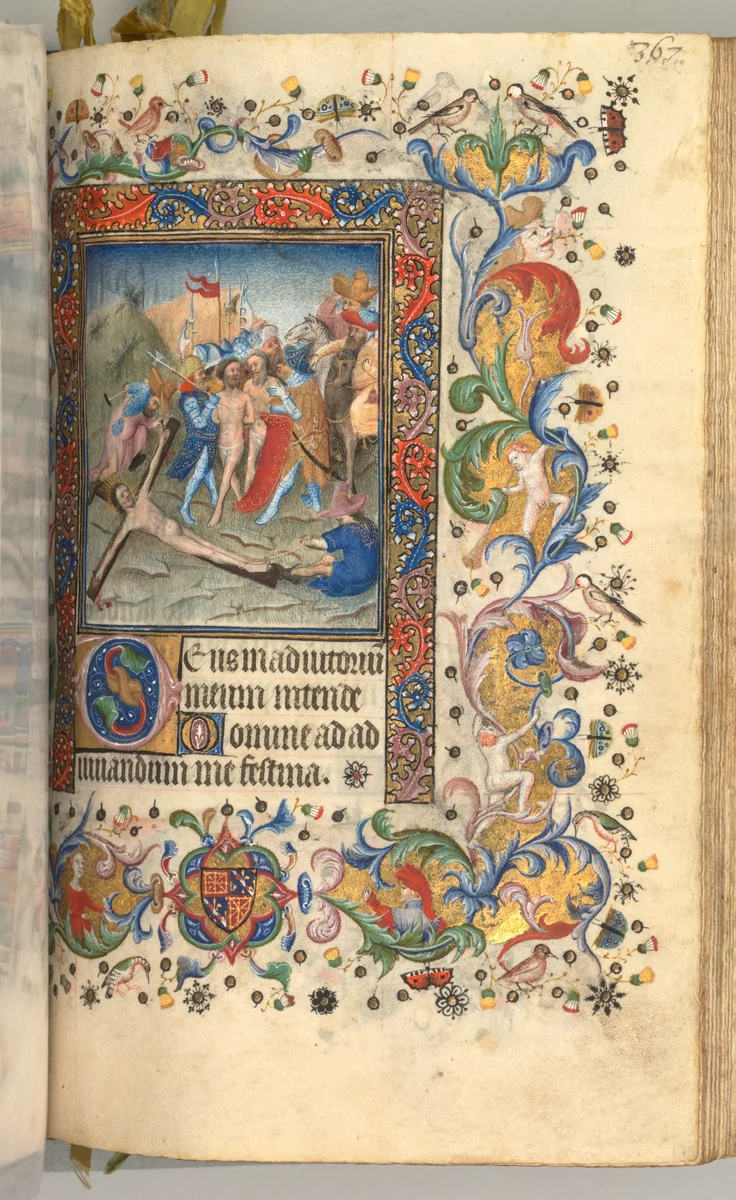 Deus in adiutoriu
meum intende
Domine ad ad
iuuandum me festina.